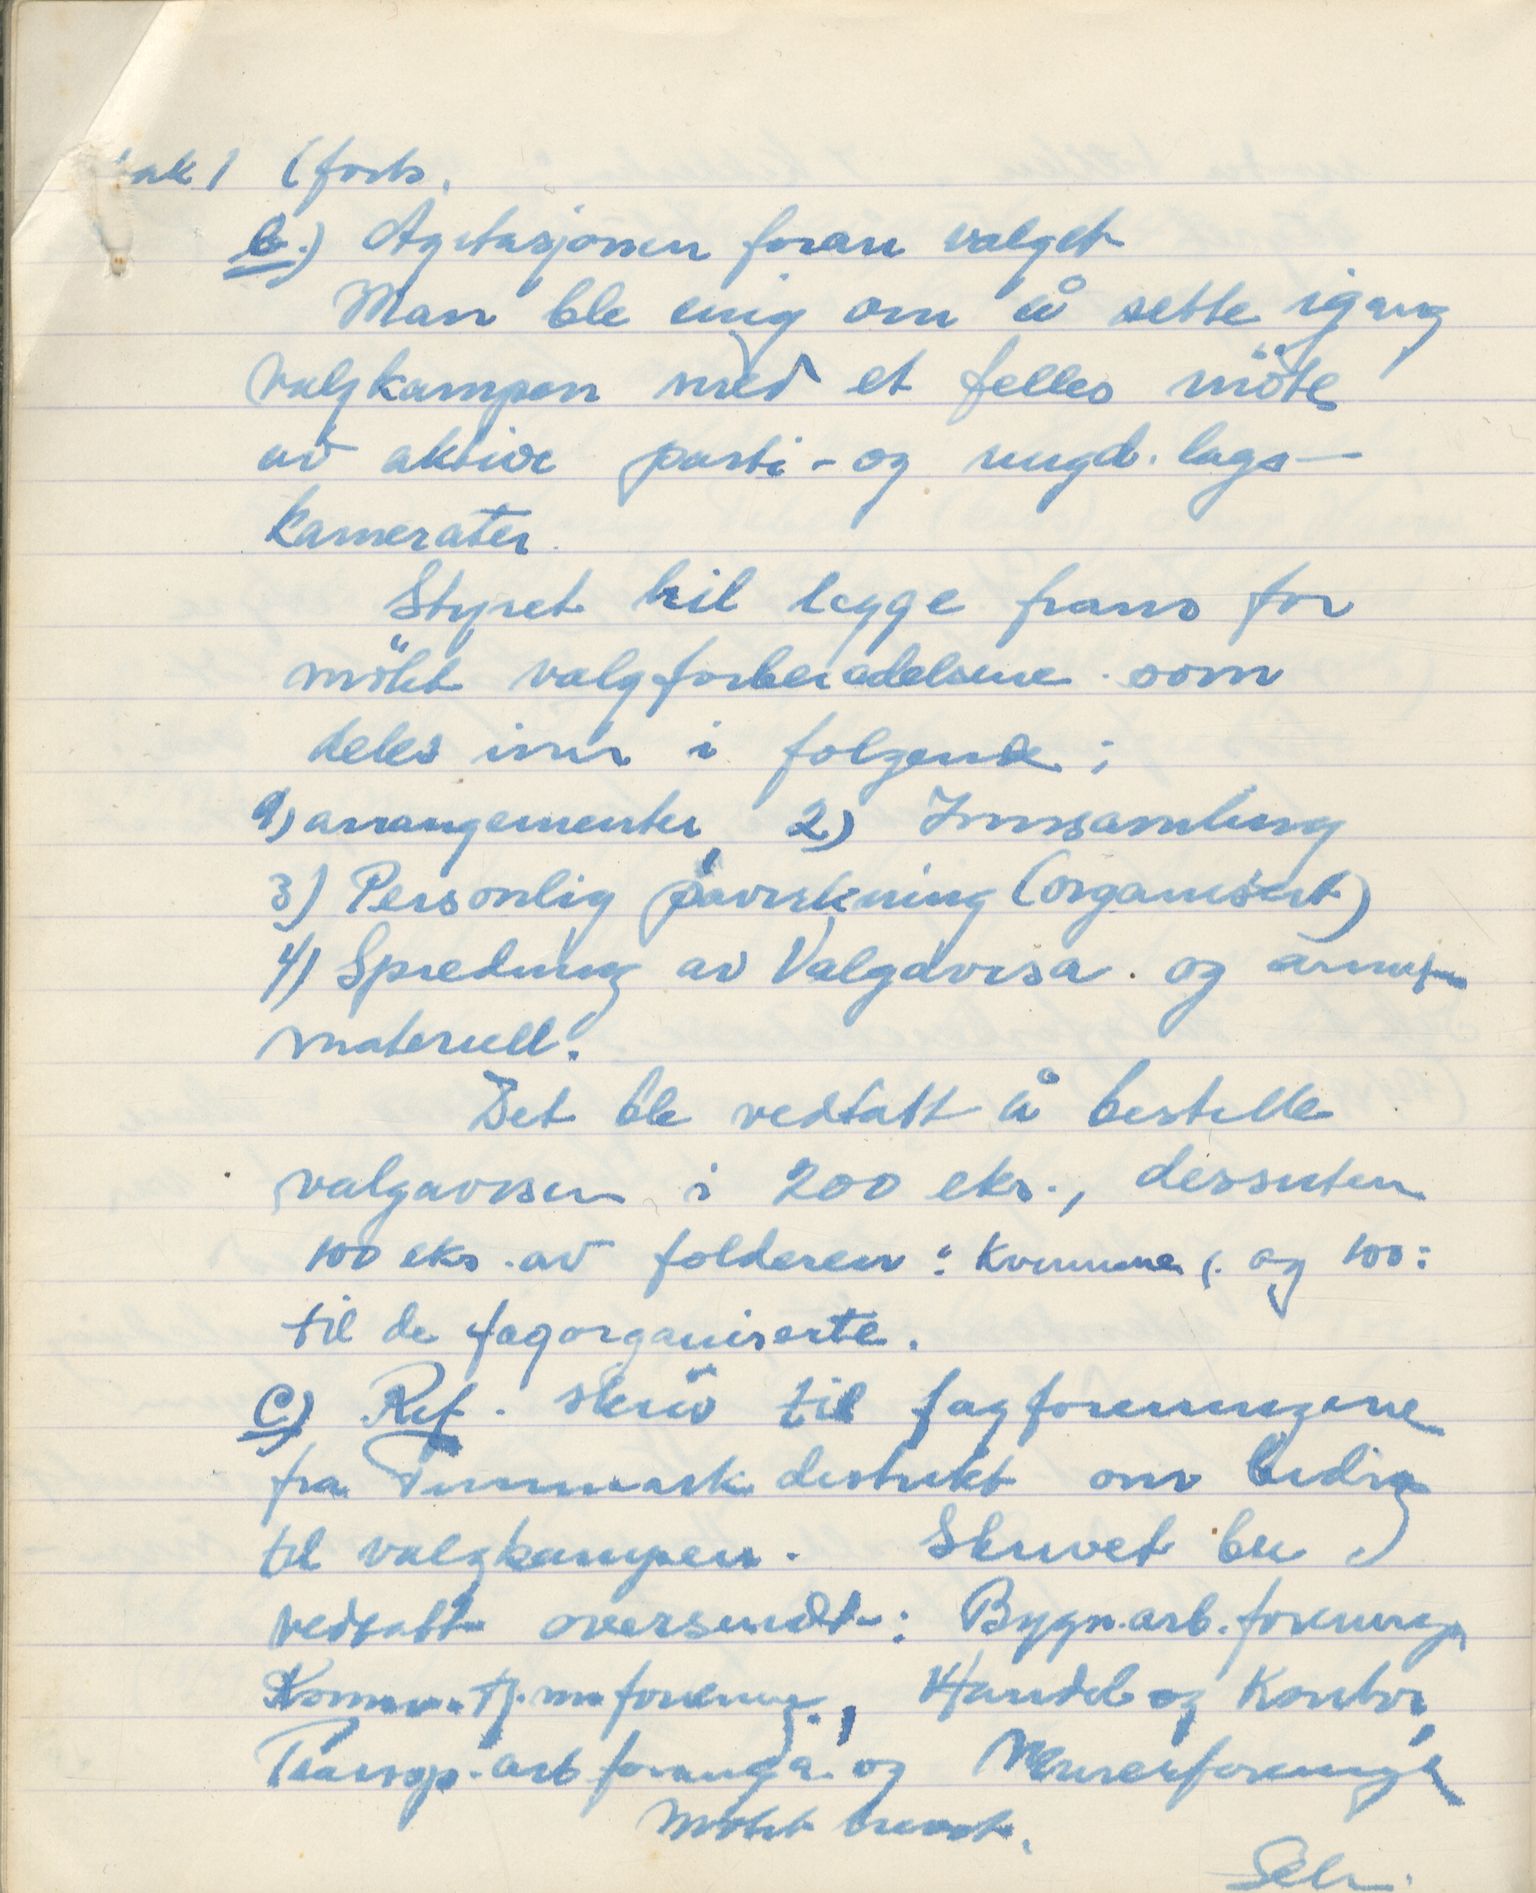 Sak 1 (forts.
b.) Agitasjonen foran valget
Man ble enig om å sette igang
valgkampen med et felles möte
av aktive parti- og ungd. lags-
kamerater.
Styret vil legge fram for
mötet valgforberedelsene som
deles inn i folgende:
1) arrangementer, 2) Innsamling
3) Personlig påvirkning (organisert)
4) Spredning av Valgavisa. og annet
materiell.
Det ble vedtatt å bestille
valgavisen i 200 eks., dessuten
100 eks. av folderen: Kvinnene og 100:
til de fagorganiserte.
C) Ref. skriv til fagforeningene
fra Finnmark distrikt om bidrag
til valgkampen. Skrivet ble
vedtatt oversendt: Bygn.arb.forening,
Komm.tj.m.forening, Handel og Kontor,
Transp.arb.foreninga. og Murerforeninga
Mötet hevet.